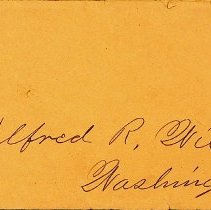 Alfred R. Wi
Washing